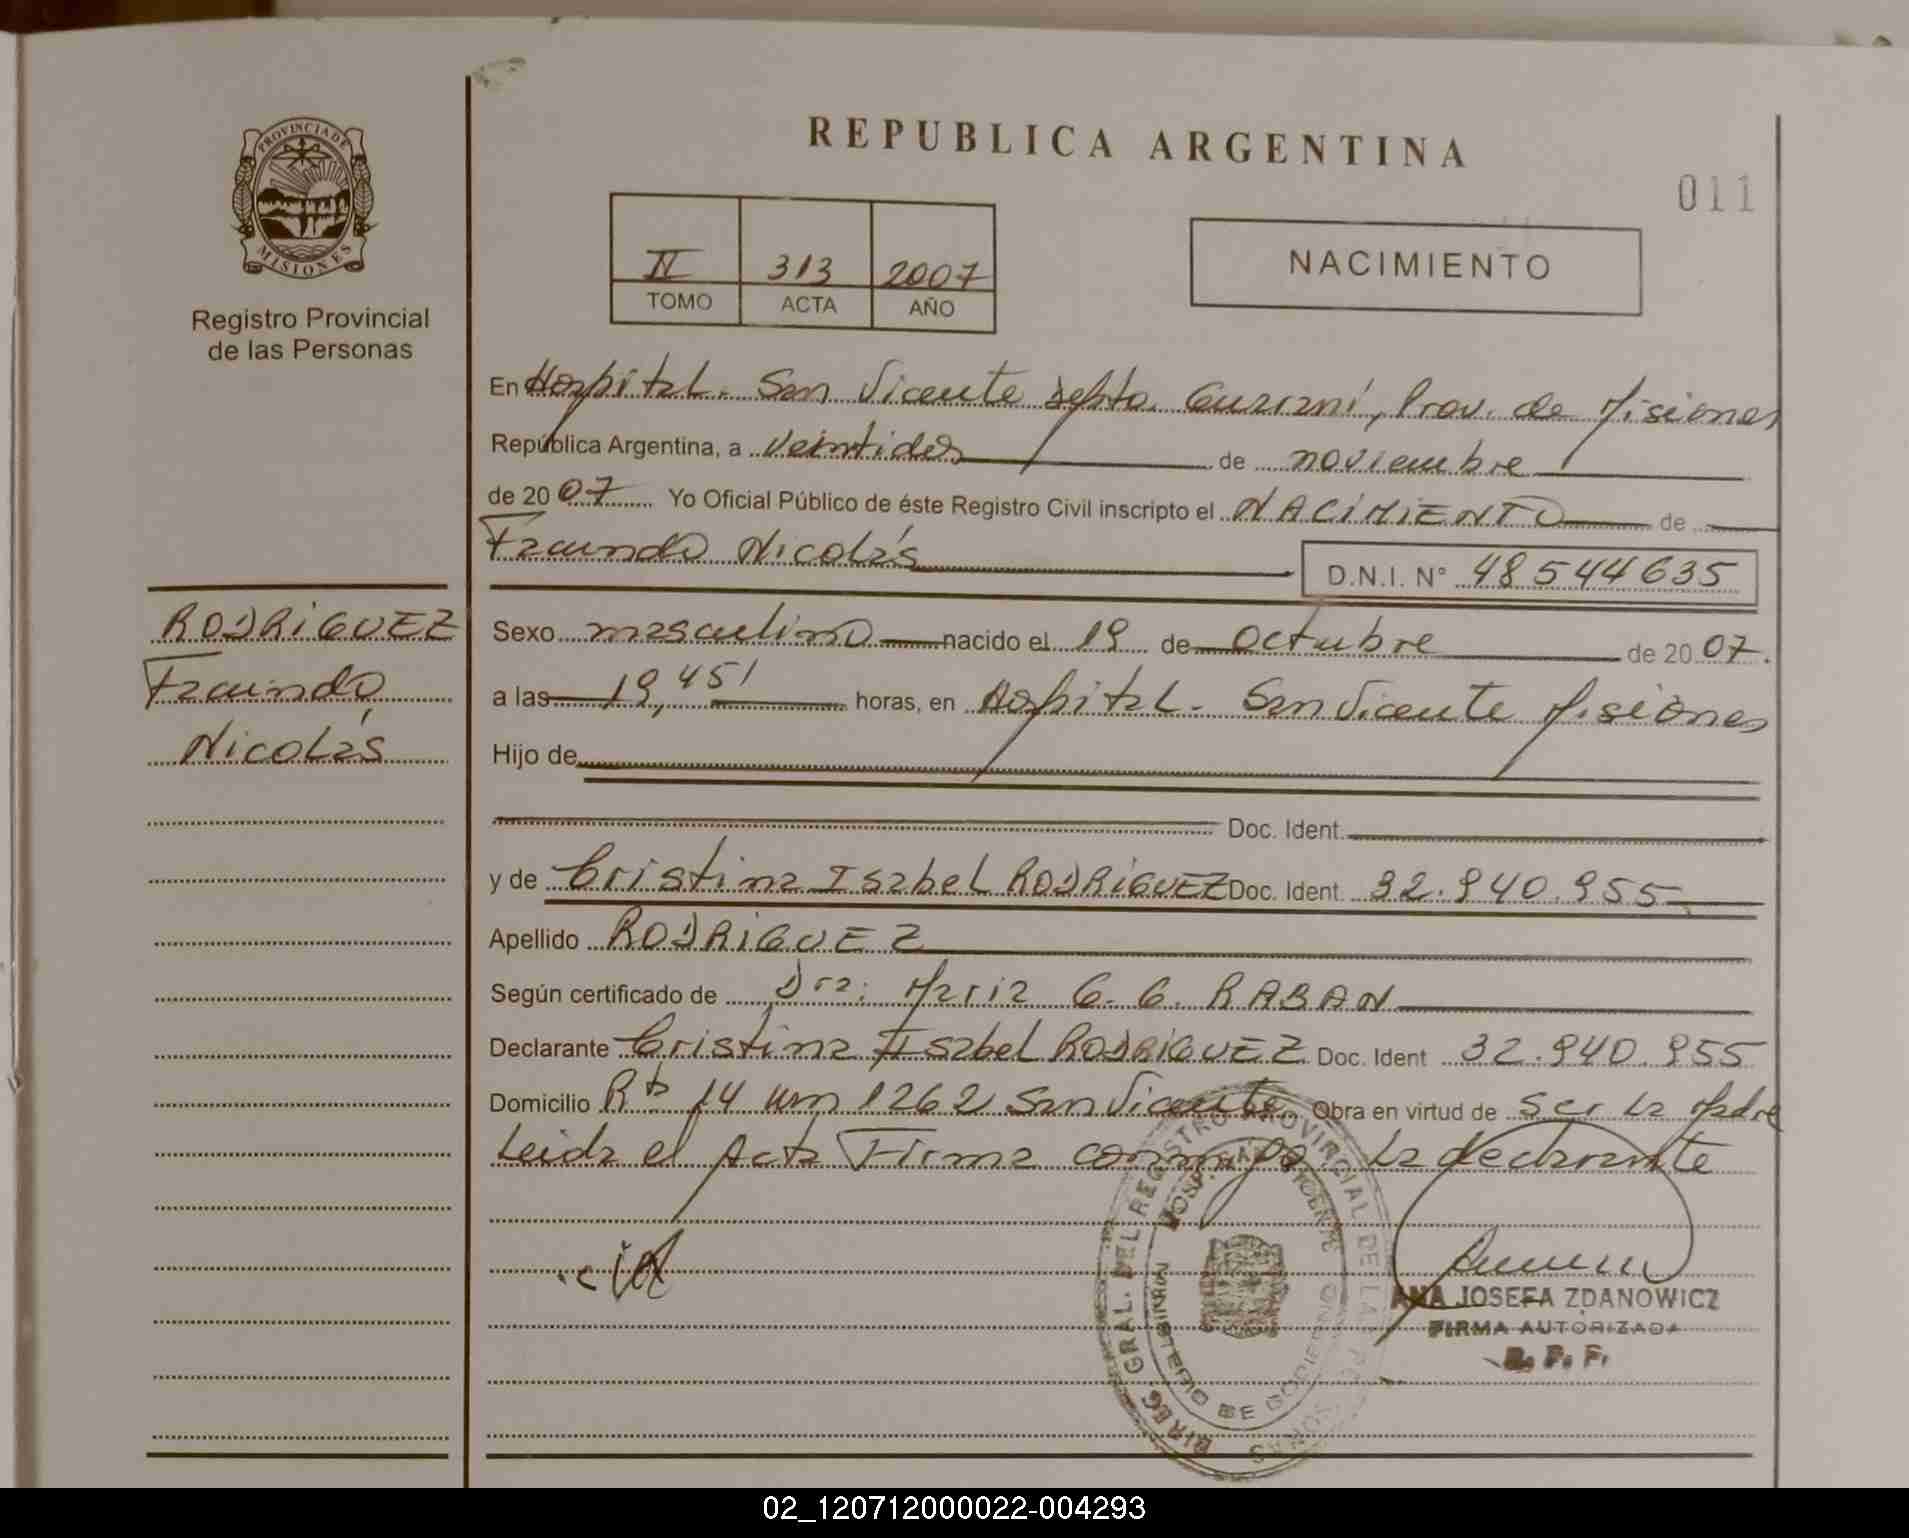 PROVINCIA DE
MISIONES
Registro Provincial
de las Personas
RODRIGUEZ
Facundo
Nicolás
REPUBLICA ARGENTINA
011
II 313 2007
TOMO ACTA AÑO
NACIMIENTO
En Hospital. San Vicente Depto. Guaraní, Prov. de Misiones
República Argentina, a veintidos de noviembre
de 2007 Yo Oficial Público de éste Registro Civil inscripto el NACIMIENTO de
Facundo Nicolás D.N.I. N° 48544635
Sexo masculino nacido el 19 de octubre de 2007.
a las 19,45' horas, en Hospital. San Vicente Misiones
Hijo de
Doc. Ident.
y de Cristina Isabel RODRIGUEZ Doc. Ident. 32.940.955
Apellido RODRIGUEZ
Según certificado de Dra: Maria G. G. RABAN
Declarante Cristina Isabel RODRIGUEZ Doc. Ident 32.940.955
Domicilio Rta 14 km 1262 San Vicente. Obra en virtud de ser la Madre
Leida el Acta Firma conmigo La declarante
DIREG GRAL. DEL REGISTRO PROVINCIAL DE LAS PERSONAS
HOSPITAL
MINISTERIO DE GOBIERNO
ANA JOSEFA ZDANOWICZ
FIRMA AUTORIZADA
R. P. F.
02_120712000022-004293